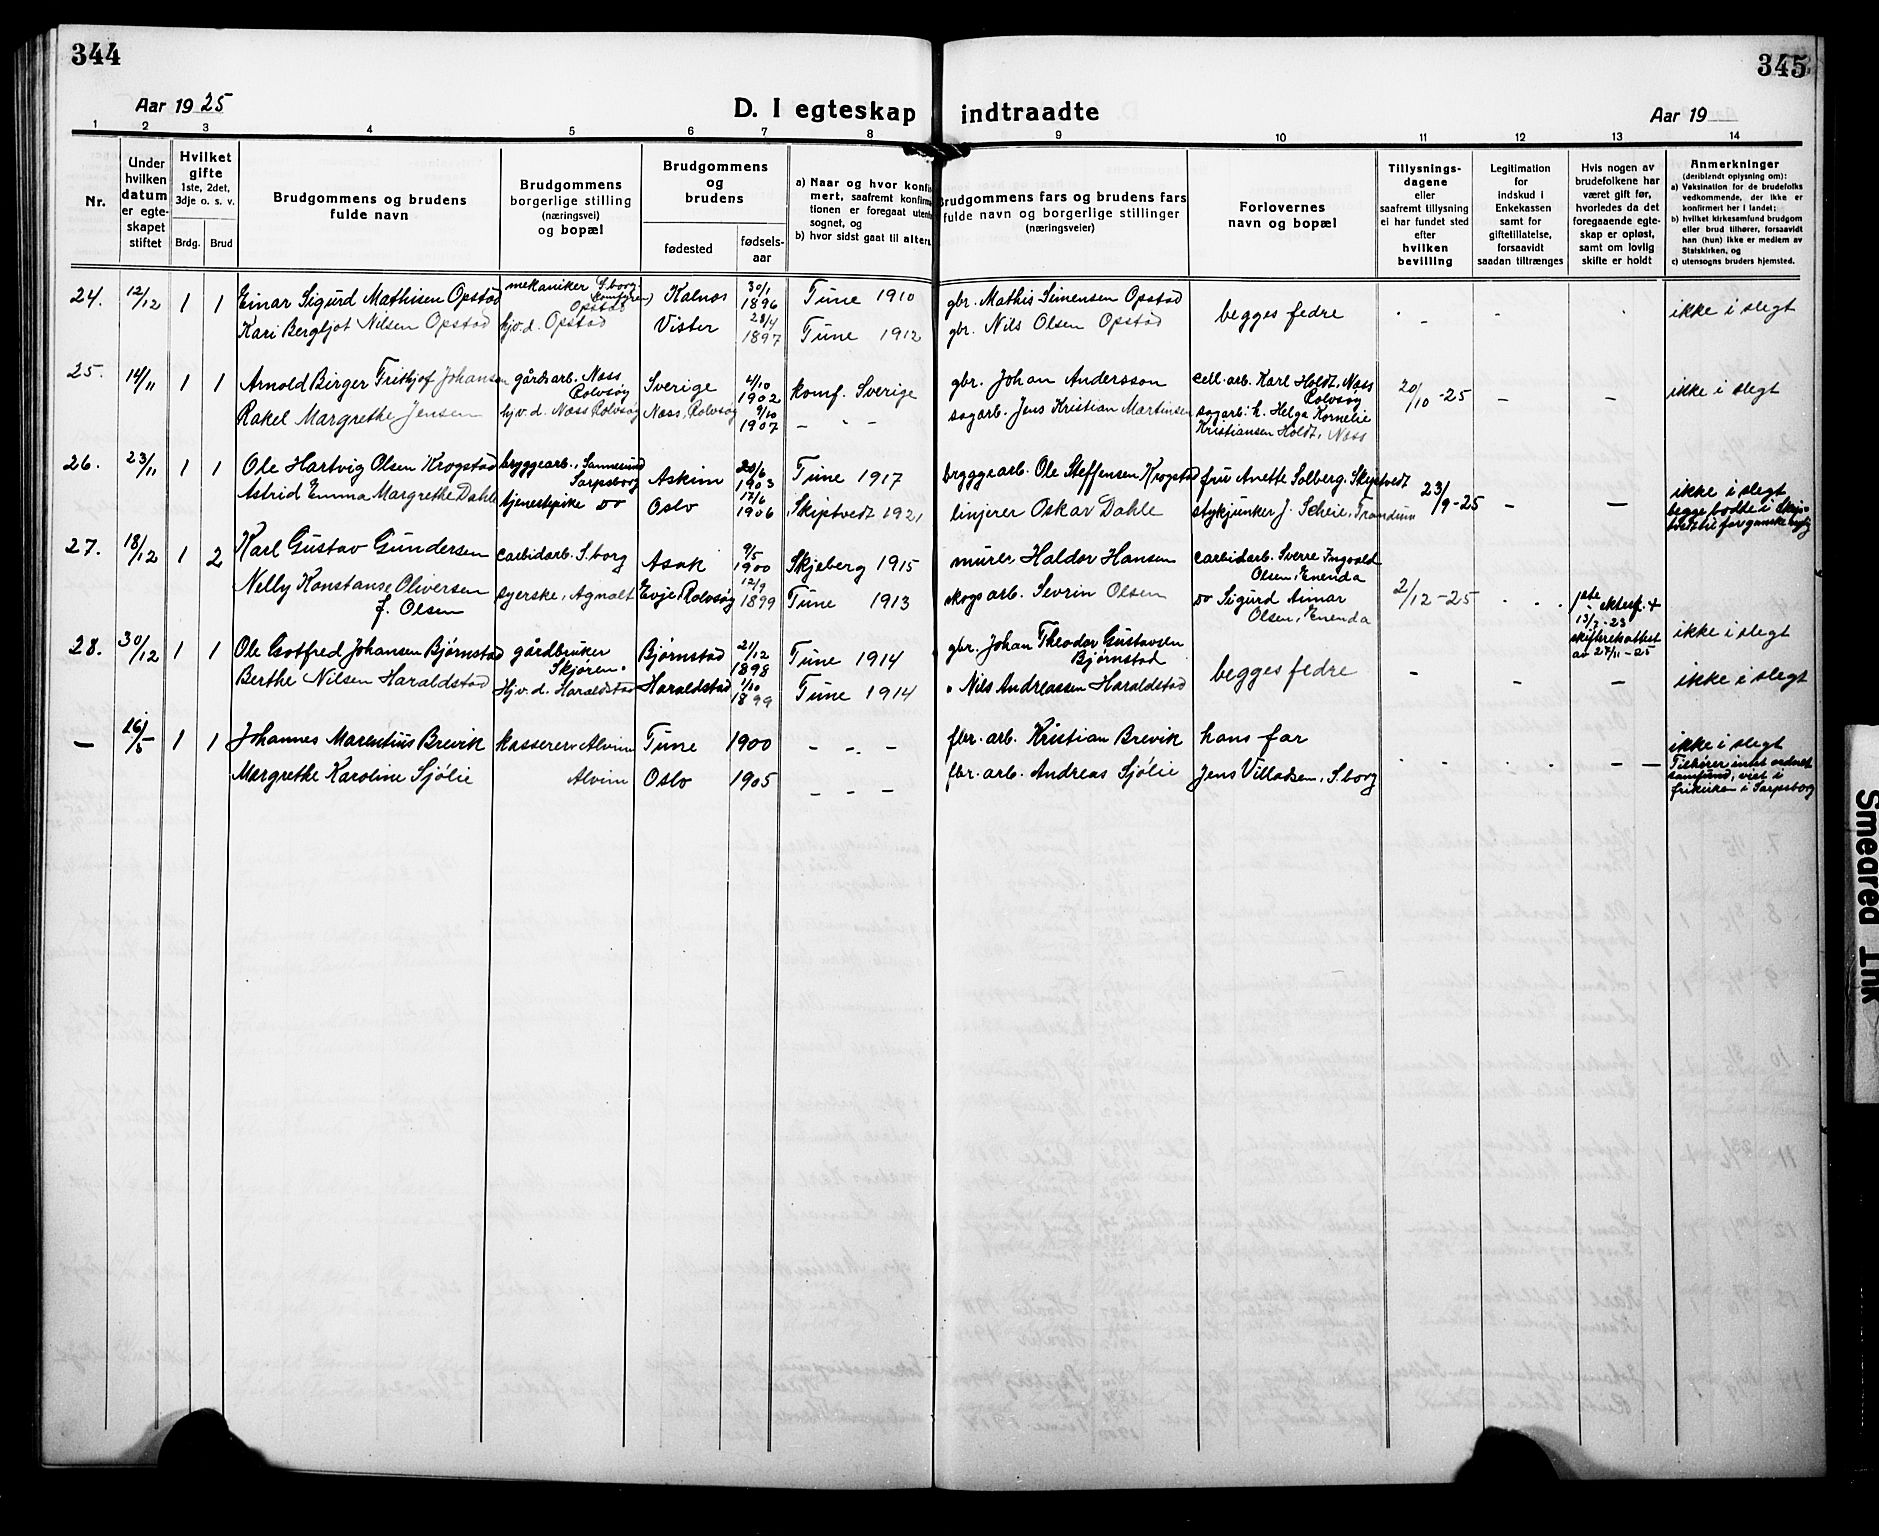 344
345
Aar 1925
D. I egteskap indtraadte
Aar 19
1 2 3 4 5 6 7 8 9 10 11 12 13 14
Nr.
Under hvilken datum er egte-skapet stiftet
Hvilket gifte
1ste, 2det, 3dje o. s. v.
Brdg. Brud
Brudgommens og brudens fulde navn
Brudgommens borgerlige stilling (næringsvei) og bopæl
Brudgommens og brudens
fødested
fødsels-aar
a) Naar og hvor konfir
mert, saafremt konfirma
tionen er foregaat utenfor
sognet, og
b) hvor sidst gaat til alters
Brudgommens fars og brudens fars
fulde navn og borgerlige stillinger
(næringsveier)
Forlovernes
navn og bopæl
Tillysnings-
dagene
eller
saafremt tillysning
ei har fundet sted
efter
hvilken
bevilling
Legitimation
for
indskud i
Enkekassen
samt for
giftetillatelse,
forsaavidt
saadan tiltrænges
Hvis nogen av
brudefolkene har
været gift før,
hvorledes da det
foregaaende egte-
skap er opløst,
samt om lovlig
skifte er holdt
Anmerkninger
(deriblandt oplysning om):
a) Vaksination for de brudefolks
vedkommende, der ikke er
konfirmert her i landet;
b) hvilket kirkesamfund brudgom
eller brud tilhører, forsaavidt
han (hun) ikke er medlem av
Statskirken, og
c) utensogns bruders hjemsted.
24. 12/12 1 1 Einar Sigurd Mathisen Opstad mekaniker S.borg Opstad Kalnes 30/1 1896 Tune 1910 gbr. Mathis Simensen Opstad begges fedre - - - ikke i slegt
Kari Bergljot Nilsen Opstad hjv.d. Opstad Vister 28/4 1897 Tune 1912 gbr. Nils Olsen Opstad
25. 14/11 1 1 Arnold Birger Frithjof Johansen gårdsarb. Næss Rolvsøy Sverige 4/10 1902 komf. Sverige gbr. Johan Andersson cell.arb. Karl Holdt, Næss Rolvsøy 20/10-25 - - ikke i slegt
Rakel Margrethe Jensen hjv.d. Næss Rolvsøy Næss, Rolvsøy 9/10 1907 - - - sagarb. Jens Kristian Martinsen sagarb: h. Helga Kornelie Kristiansen Holdt, Næss
26. 23/11 1 1 Ole Hartvig Olsen Krogstad bryggearb., Sannesund Sarpsborg Askim 1903 Tune 1917 bryggearb. Ole Steffensen Krogstad fru Anette Solberg. Skiptvedt 23/9-25 - - ikke i slegt
Astrid Emma Margrethe Dahle tjenestepike do Oslo 17/6 1906 Skiptvedt 1921 linjerer Oskar Dahle stykjunker J. Scheie, Trandum begge bodte i Skip-
27. 18/12 1 2 Karl Gustav Gundersen carbidarb. S.borg Asak 9/5 1900 Skjeberg 1915 murer Haldor Hansen carbidarb. Sverre Ingvald Olsen, Enenda 2/12-25 - - 1ste ektef. + 13/7-23 skifterettattest av 27/11-25 ikke i slegt
Nelly Konstanse Oliversen f. Olsen syerske, Agnalt Evje, Rolvsøy 12/9 1899 Tune 1913 skogsarb. Sevrin Olsen do Sigurd Aimar Olsen, Enenda
28. 30/12 1 1 Ole Gotfred Johansen Bjørnstad gårdbruker Skjøren Bjørnstad 21/12 1898 Tune 1914 gbr. Johan Theodor Gustavsen Bjørnstad begges fedre - - - ikke i slegt
Berthe Nilsen Haraldstad Hjv.d. Haraldstad Haraldstad 1/10 1899 Tune 1914 " Nils Andreassen Haraldstad
- 16/5 1 1 Johannes Marentius Brevik kasserer, Alvim Tune 1900 - - - fbr.arb. Kristian Brevik hans far - - - - ikke i slegt
Margrethe Karoline Sjölie Alvim Oslo 1905 - - - fbr.arb. Andreas Sjölie Jens Villadsen, S.borg Tilhører intet ordnet
samfund, viet i
frikirken i Sarpsborg
Smeared Ink